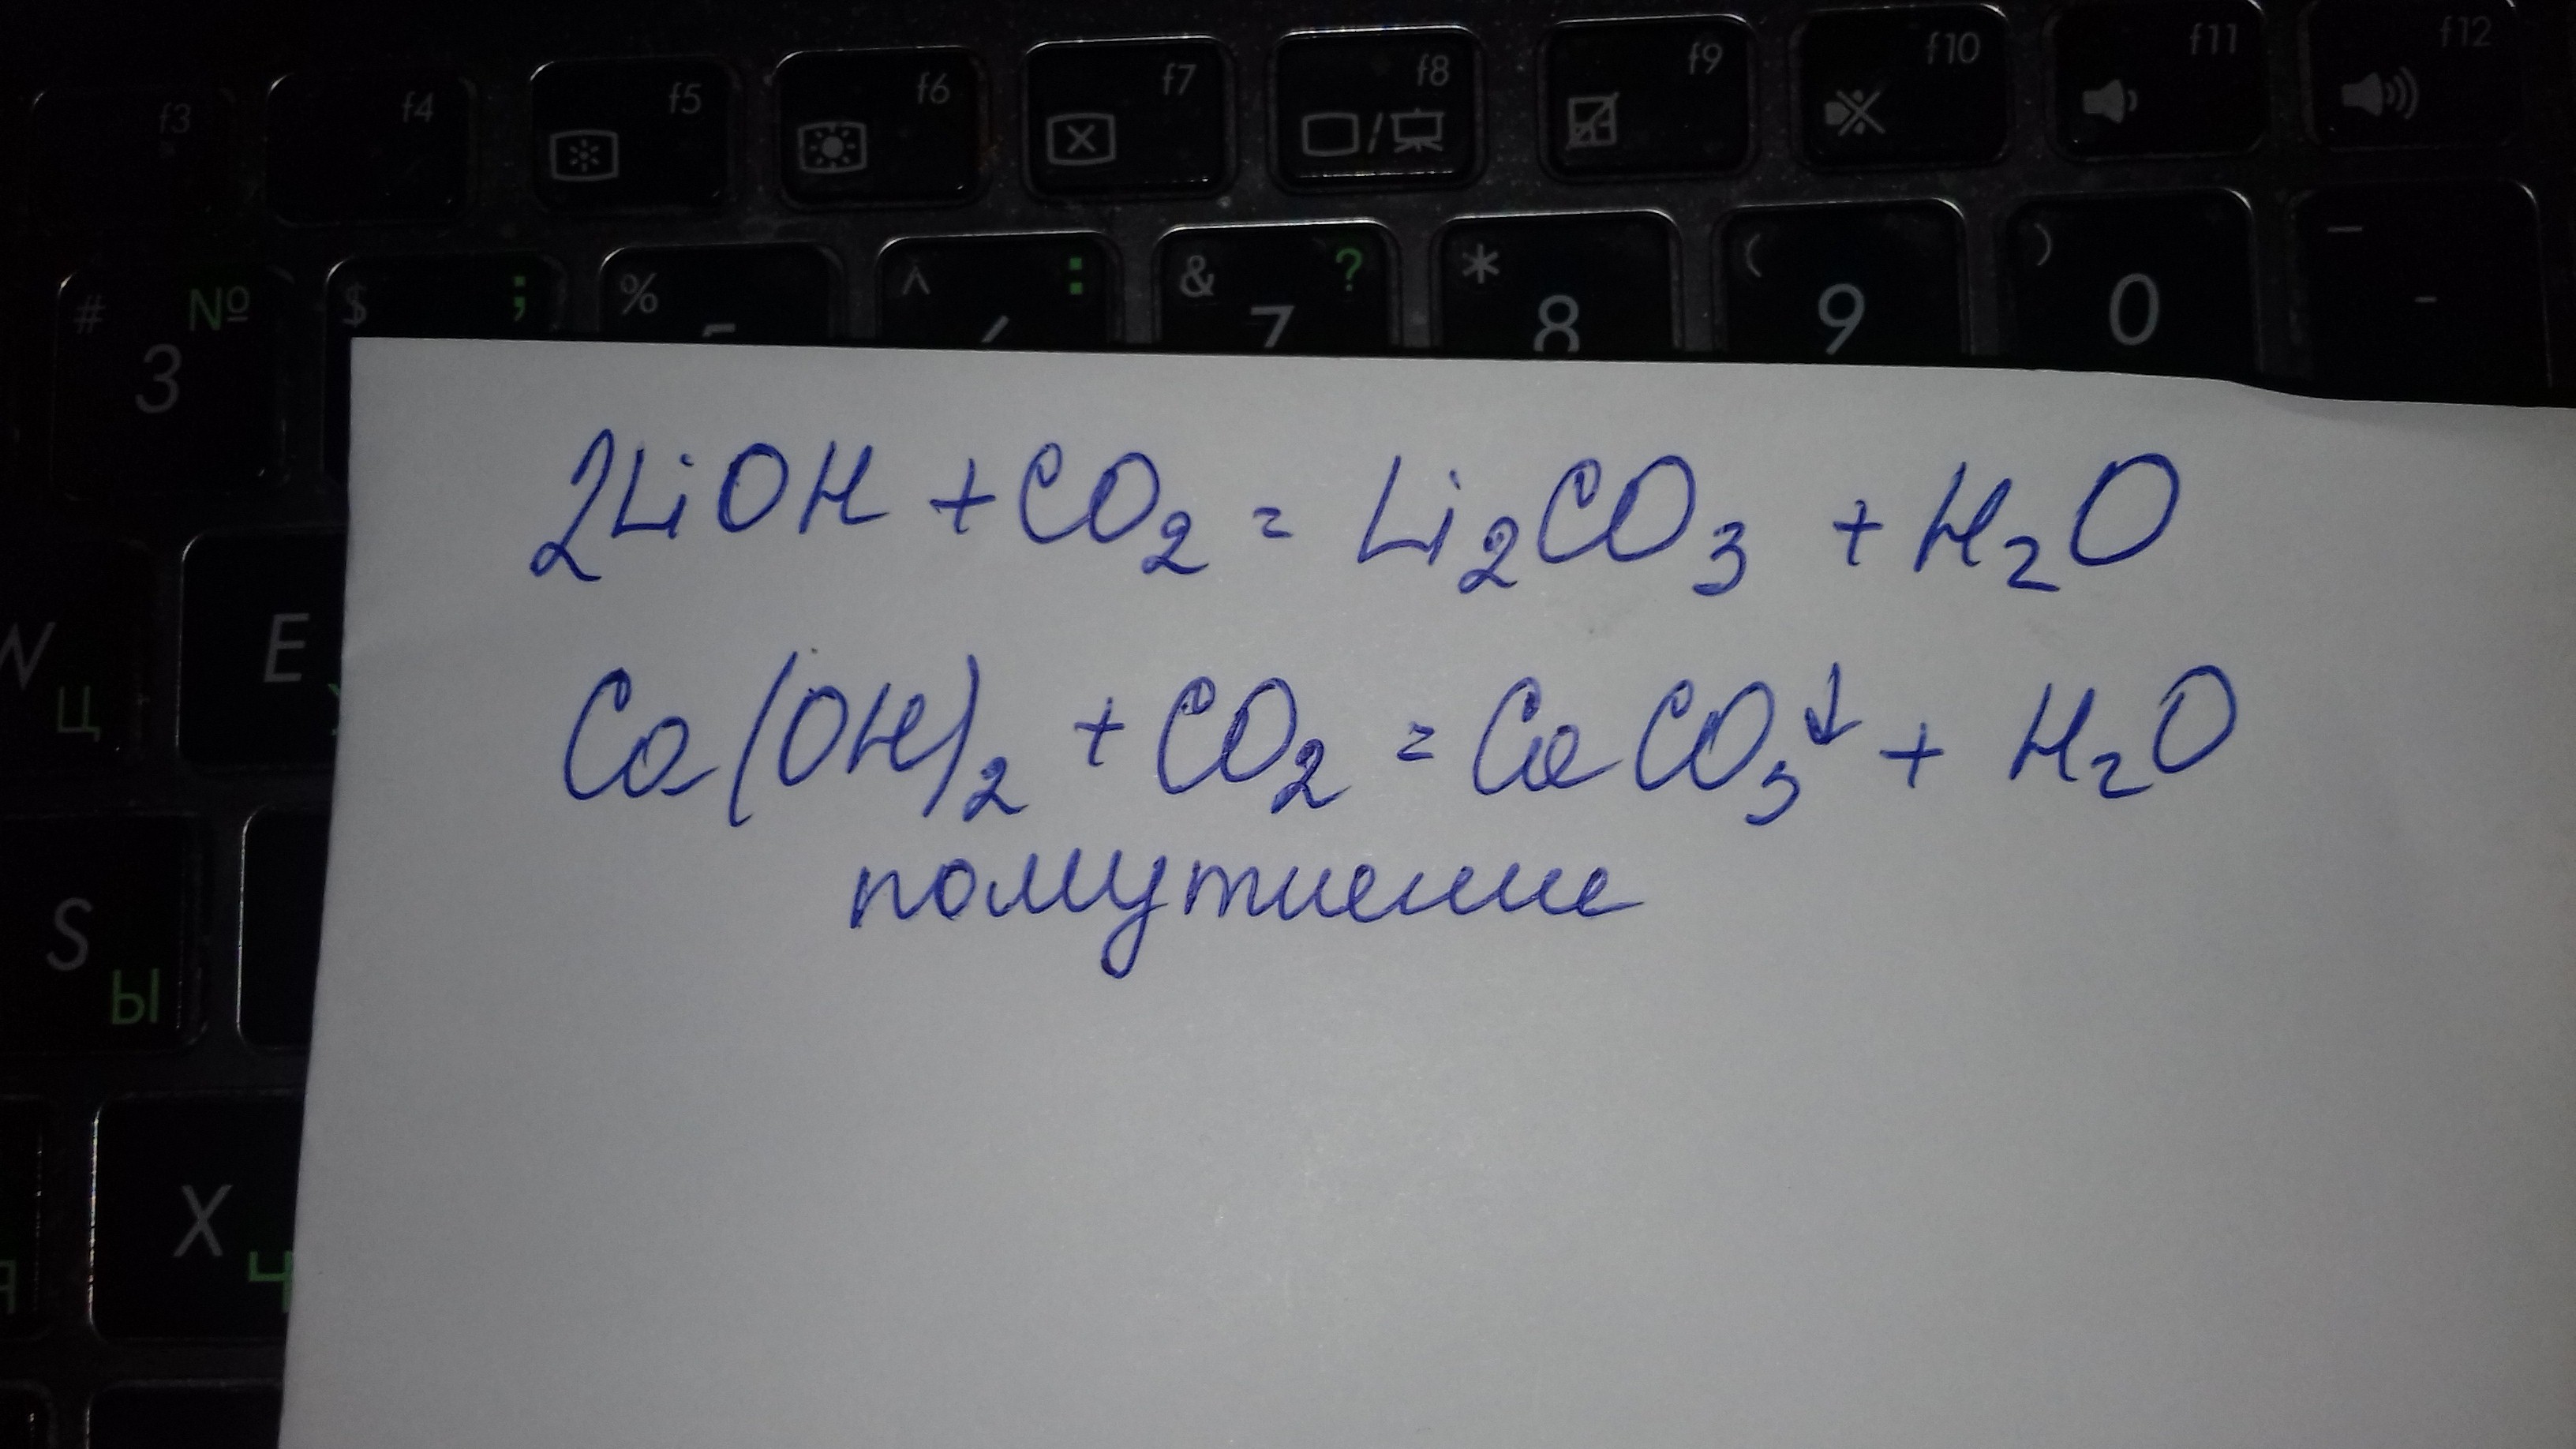 f3 f4 f5 f6 f7 f8 f9 f10 f11 f12
# № 3 $ ; % ^ : & ? 7 * 8 ( 9 ) 0 _ -
2LiOH + CO₂ = Li₂CO₃ + H₂O
W Ц E
Ca(OH)₂ + CO₂ = CaCO₃↓ + H₂O
помутнение
S Ы
X Ч
Я